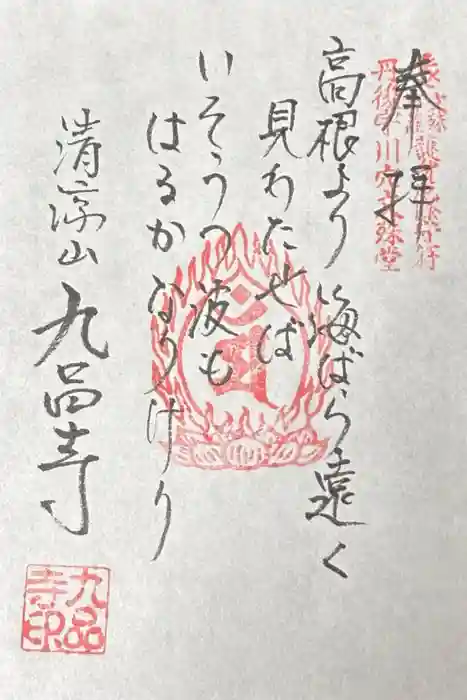 奉拝
高根より海ばら遠く
見わたせば
いそうつ波も
はるかなりけり
清涼山 九品寺
九品
寺印